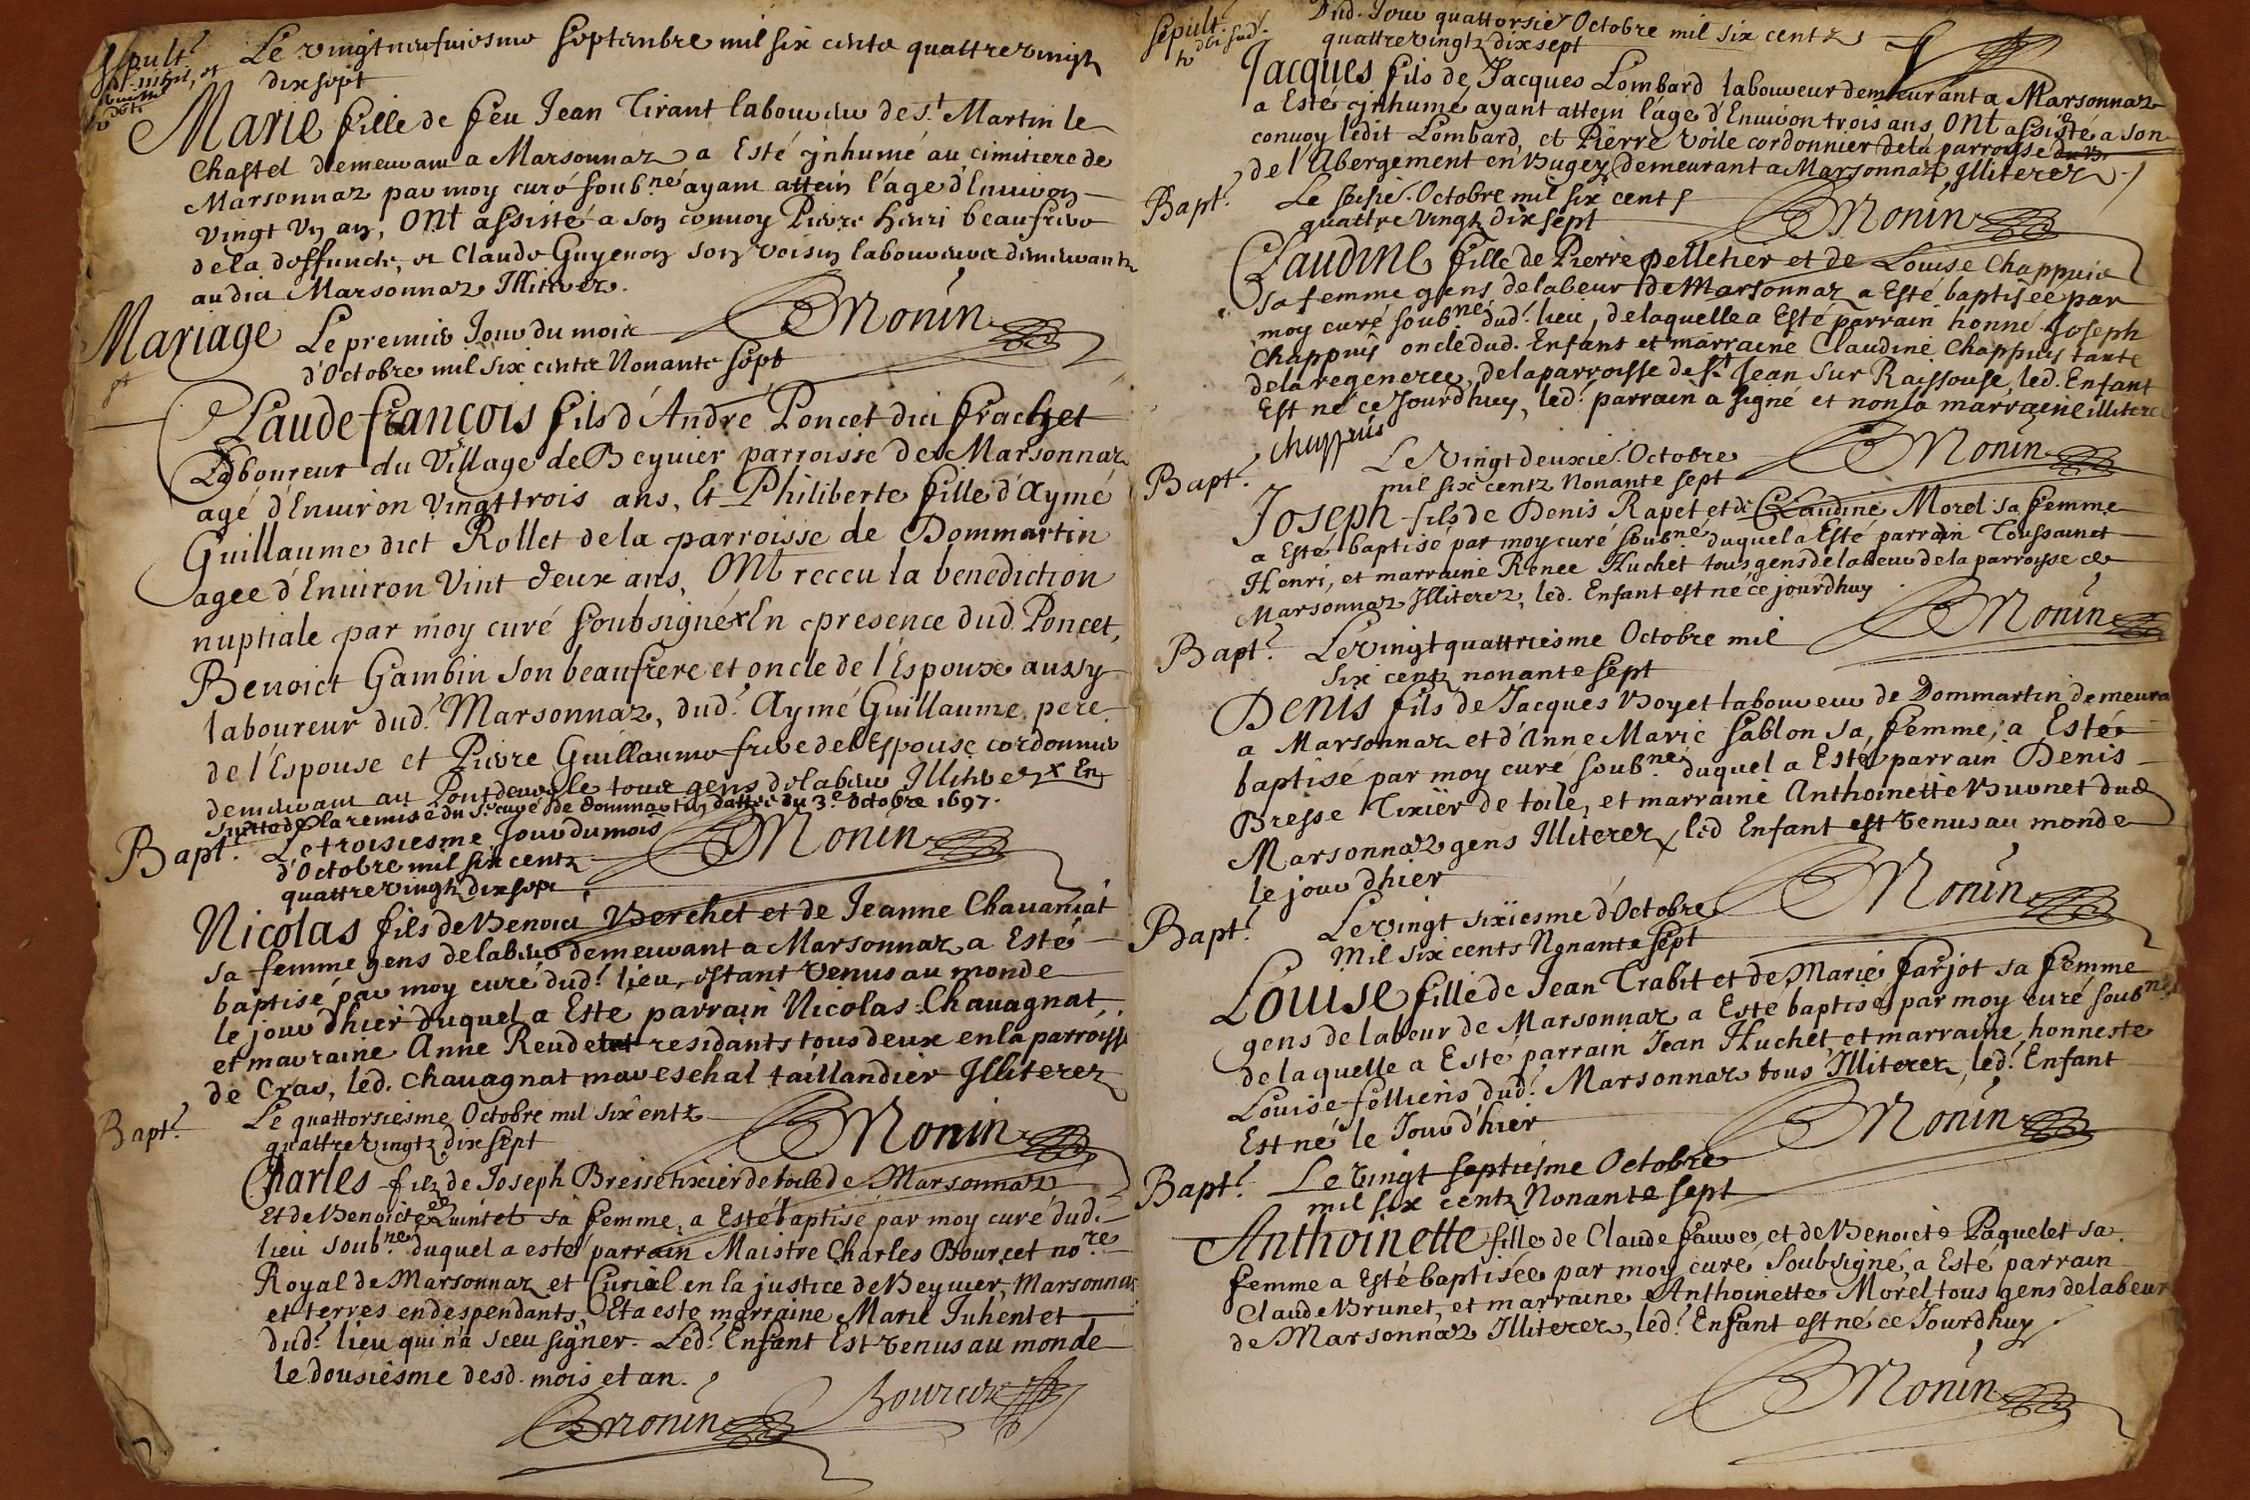 Sepult.
Le vingt neufuiesme septembre mil six centz quattre vingtz
dix sept
Marie fille de feu Jean Tirant laboureur de St. Martin le
Chastel demeurant a Marsonnaz a Esté jnhumé au cimitiere de
Marsonnaz par moy curé soubné ayant attein l'age d'Enuiron
vingt vn an, Ont assisté a son conuoy Pierre Henri beaufrere
de la deffuncte, et Claude Guyenon son voisin laboureurs demeurantz
audict Marsonnaz Illiterez.
BMonin
Mariage
Le premier Jour du mois
d'Octobre mil six centz Nonante sept
Claude françois fils d'André Poncet dict frachet
Laboureur du Village de Beyuier parroisse de Marsonnaz
agé d'Enuiron vingt trois ans, Et Philiberte fille d'Aymé
Guillaume dict Rollet de la parroisse de Dommartin
agee d'Enuiron Vint deux ans, Ont receu la benediction
nuptiale par moy curé soubsigné x En presence dud. Poncet,
Benoict Gambin son beaufrere et oncle de l'Espoux aussy
laboureur dud. Marsonnaz, dud. Aymé Guillaume pere
de l'Espouse et Pierre Guillaume frere de l'Espouse cordonnier
demeurant au Pontdeuesle tous gens de labeur Illiterez x En
suitte de la remise du Sr. curé de dommartin dattée du 3e Octobre 1697.
BMonin
Bapt.
Le troisiesme Jour du mois
d'Octobre mil six centz
quattre vingtz dix sept
Nicolas fils de Benoict Berchet et de Jeanne Chauaniat
sa femme gens de labeur demeurant a Marsonnaz a Esté
baptisé par moy curé dud. lieu, estant venus au monde
le jour d'hier duquel a Esté parrain Nicolas Chauagnat
et marraine Anne Reudet residants tous deux en la parroisse
de Cras, led. Chauagnat mareschal taillandier Illiterez
BMonin
Bapt.
Le quattorsiesme Octobre mil six centz
quattre vingtz dix sept
Charles filz de Joseph Bresse tixier de toile de Marsonnaz
Et de Benoicte Quintet sa femme, a Esté baptisé par moy curé dud.
lieu soubné duquel a esté parrain Maistre Charles Bourcet nore
Royal de Marsonnaz et Curial en la justice de Beyuier, Marsonnaz
et terres en despendants, Et a esté marraine Marie Juhentet
dud. lieu qui n'a sceu signer. Led. Enfant Est venus au monde
le dousiésme desd. mois et an.
BMonin
Bourcet
Sepult.
Dud. Jour quattorsie. Octobre mil six centz
quattre vingtz dix sept
Jacques fils de Jacques Lombard laboureur demeurant a Marsonnaz
a Esté jnhumé ayant attein l'age d'Enuiron trois ans, Ont assisté a son
conuoy ledit Lombard, et Pierre Voile cordonnier de la parroisse
de l'Abergement en Bugey demeurant a Marsonnaz Illiterez
BMonin
Bapt.
Le seisie. Octobre mil six cents
quattre vingtz dix sept
Claudine fille de Pierre Pelletier et de Louise Chappuis
sa femme gens de labeur de Marsonnaz a Esté baptisée par
moy curé soubné dud. lieu, de laquelle a Esté parrain honné Joseph
Chappuis oncle dud. Enfant et marraine Claudine Chappuis tante
de la regeneree, de la parroisse de St Jean sur Raissouse, led. Enfant
Est né ce Jourdhuy, led. parrain a signé et non la marraine illiteree
chappuis
BMonin
Bapt.
Le Vingt deuxie. Octobre
mil six centz Nonante sept
Joseph fils de Denis Rapet et de Claudine Morel sa femme
a Esté baptisé par moy curé soubné duquel a Esté parrain Toussainct
Henri, et marraine Renee Huchet tous gens de labeur de la parroisse de
Marsonnaz Illiterez, led. Enfant est né ce jourdhuy
BMonin
Bapt.
Le vingt quattriesme Octobre mil
six centz nonante sept
Denis fils de Jacques Boyet laboureur de Dommartin demeura
a Marsonnaz et d'Anne Marie Sablon sa femme, a Esté
baptisé par moy curé soubné duquel a Esté parrain Denis
Bresse Tixier de toile, et marraine Anthoinette Buonet dud
Marsonnaz gens Illiterez, led Enfant est venus au monde
le jour d'hier
BMonin
Bapt.
Le vingt sixiesme d'Octobre
Mil six cents Nonante sept
Louise fille de Jean Trabit et de Marie farjot sa femme
gens de labeur de Marsonnaz a Esté baptisé par moy curé soubné
de laquelle a Esté parrain Jean Huchet et marraine honneste
Louise felliens dud. Marsonnaz tous Illiterez, led. Enfant
Est né le Jour d'hier
BMonin
Bapt.
Le vingt septiesme Octobre
mil six centz Nonante sept
Anthoinette fille de Claude fauvre et de Benoicte Paquelet sa
femme a Esté baptisée par moy curé soubsigné, a Esté parrain
Claude Brunet, et marraine Anthoinette Morel tous gens de labeur
de Marsonnaz Illiterez, led. Enfant est né ce Jourdhuy
BMonin